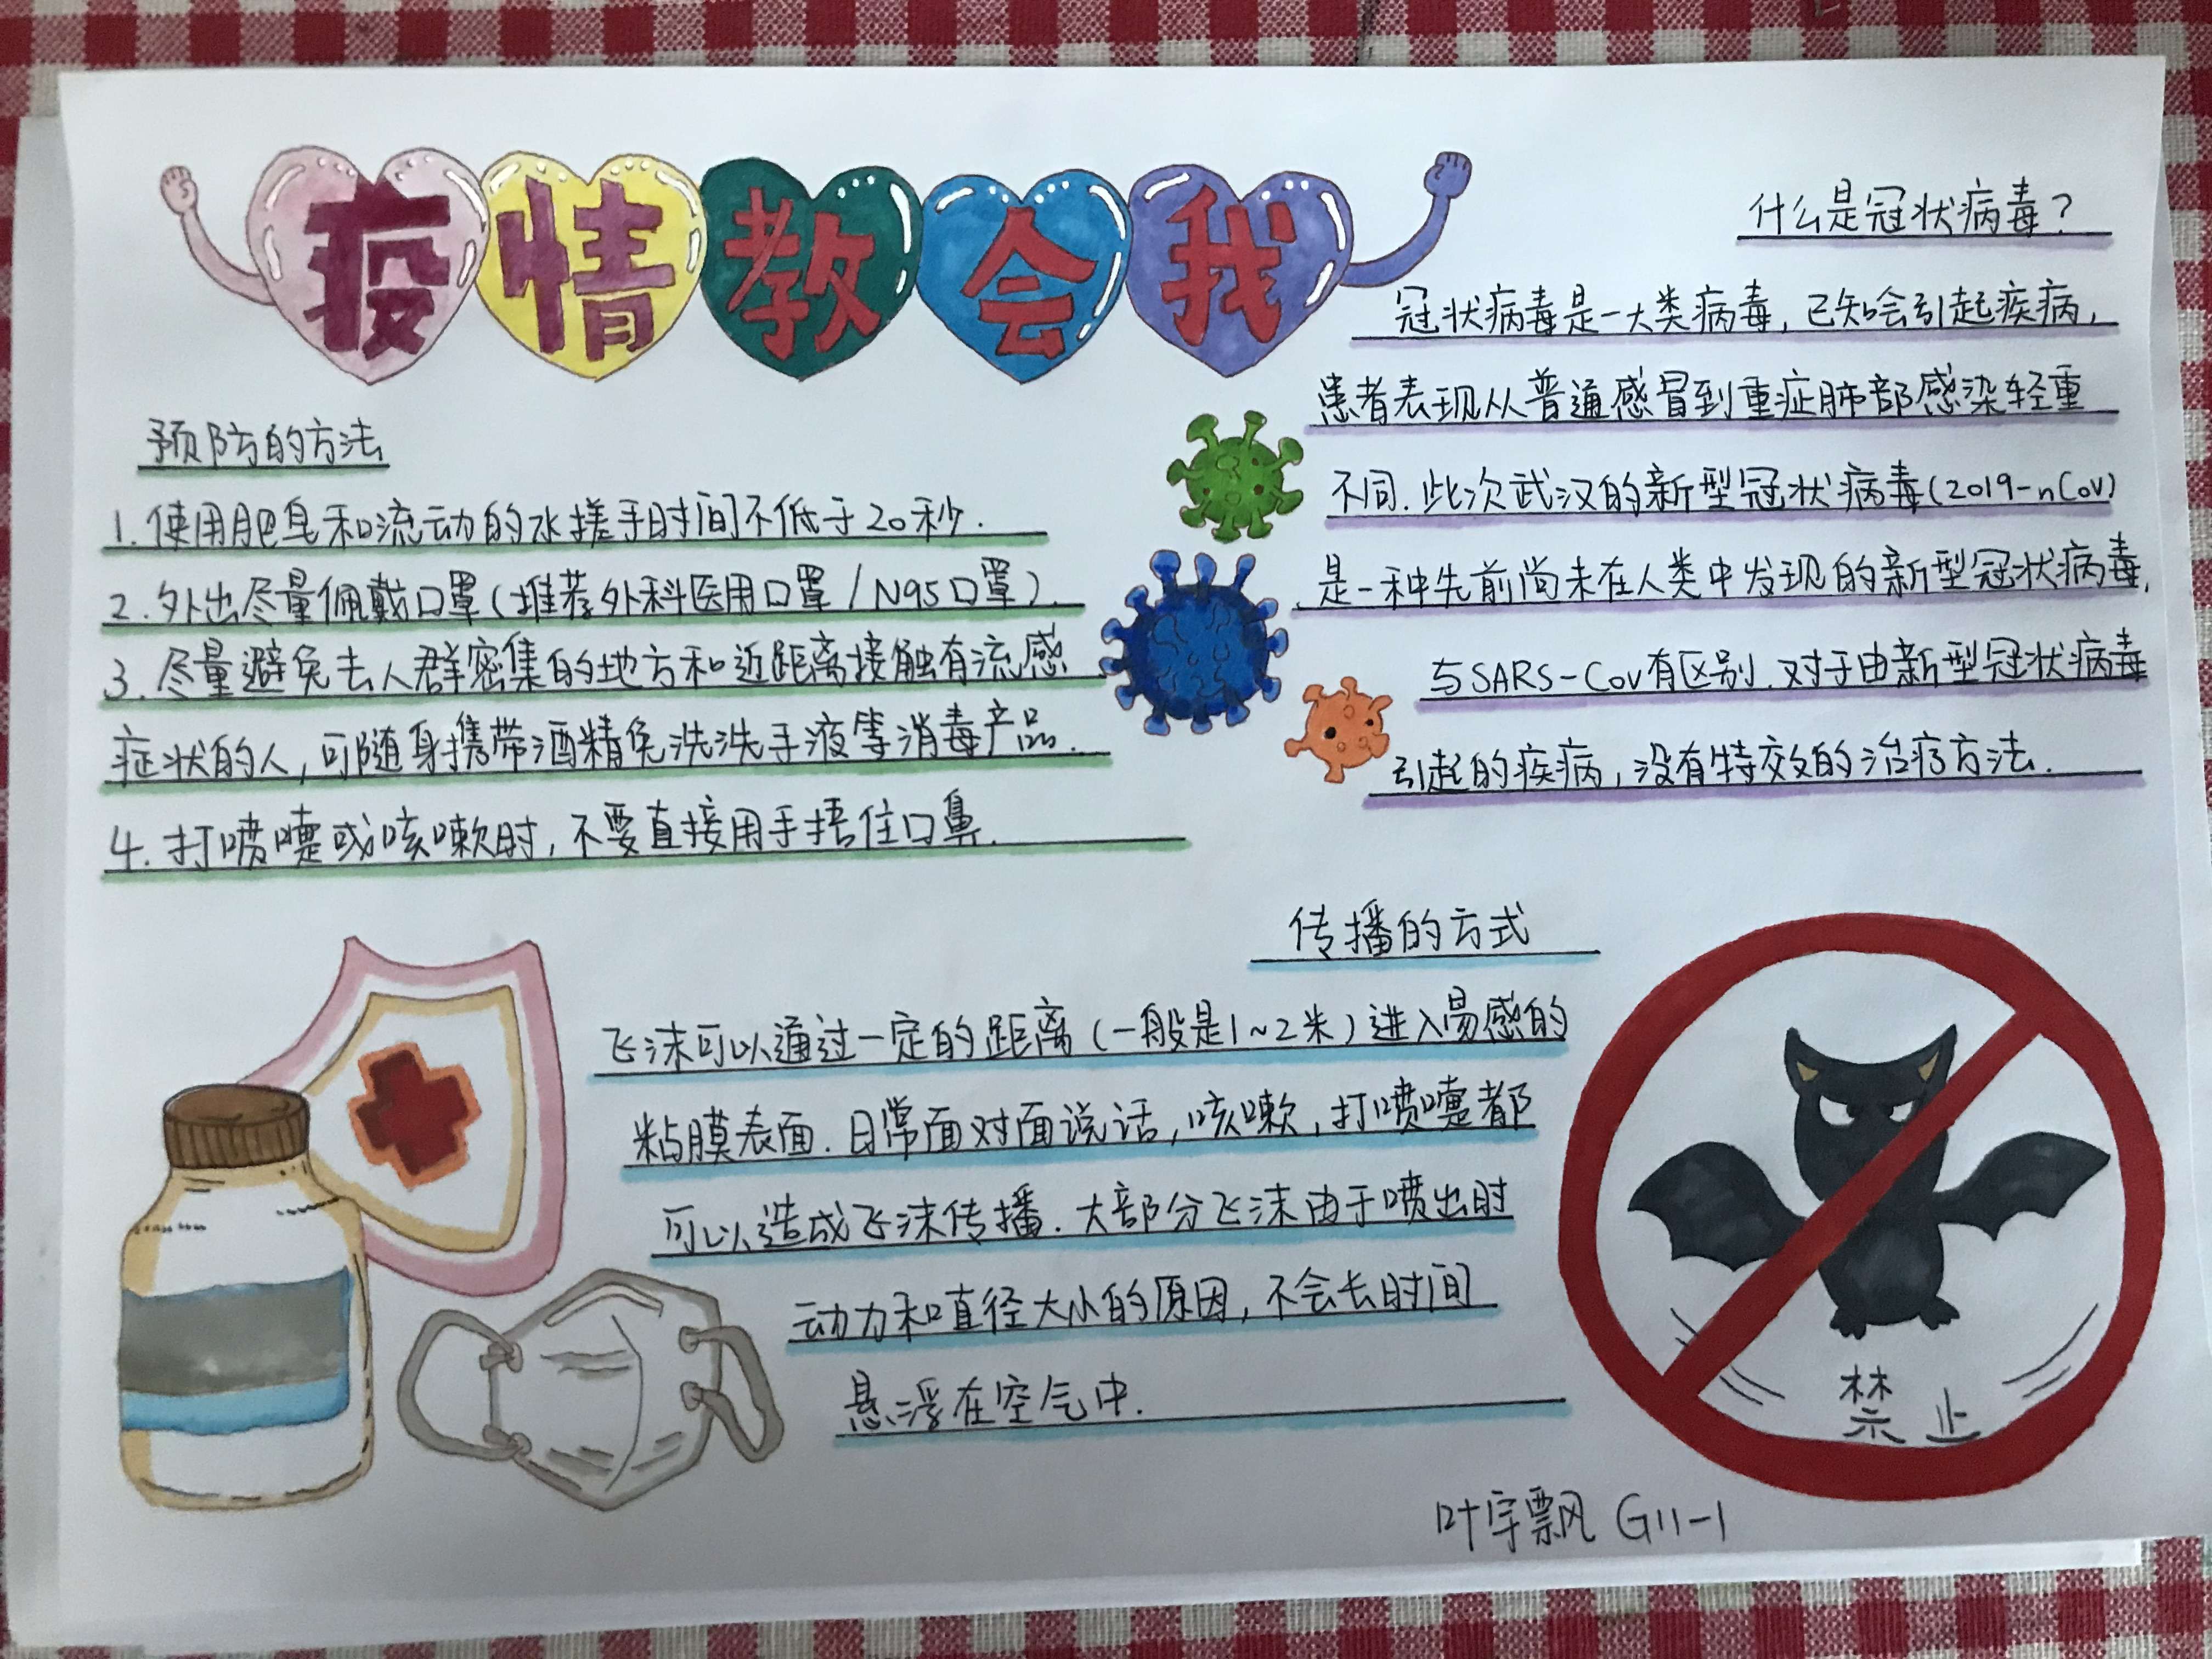 疫情教会我
什么是冠状病毒？
冠状病毒是一大类病毒，已知会引起疾病，
患者表现从普通感冒到重症肺部感染轻重
不同.此次武汉的新型冠状病毒(2019-nCoV)
是一种先前尚未在人类中发现的新型冠状病毒，
与SARS-CoV有区别.对于由新型冠状病毒
引起的疾病，没有特效的治疗方法.
预防的方法
1.使用肥皂和流动的水搓手时间不低于20秒.
2.外出尽量佩戴口罩(推荐外科医用口罩/N95口罩).
3.尽量避免去人群密集的地方和近距离接触有流感
症状的人,可随身携带酒精免洗洗手液等消毒产品.
4.打喷嚏或咳嗽时,不要直接用手捂住口鼻.
传播的方式
飞沫可以通过一定的距离(一般是1~2米)进入易感的
粘膜表面.日常面对面说话,咳嗽,打喷嚏都
可以造成飞沫传播.大部分飞沫由于喷出时
动力和直径大小的原因,不会长时间
悬浮在空气中.
禁止
叶宇飘 G11-1